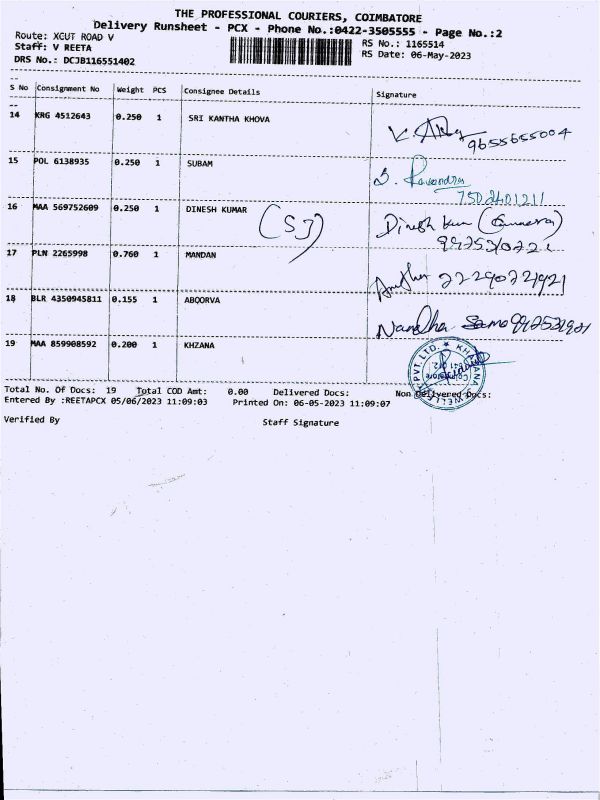 THE PROFESSIONAL COURIERS, COIMBATORE
Delivery Runsheet - PCX - Phone No.:0422-3505555 - Page No.:2
Route: XCUT ROAD V
Staff: V REETA
DRS No.: DCJB116551402
RS No.: 1165514
RS Date: 06-May-2023
S No Consignment No Weight PCS Consignee Details Signature
14 KRG 4512643 0.250 1 SRI KANTHA KHOVA
9655655004
15 POL 6138935 0.250 1 SUBAM
16 MAA 569752609 0.250 1 DINESH KUMAR (SJ) Dinesh
17 PLN 2265998 0.760 1 MANDAN
18 BLR 4350945811 0.155 1 ABOORVA
Nandha
19 MAA 859908592 0.200 1 KHZANA
Total No. Of Docs: 19 Total COD Amt: 0.00 Delivered Docs: Non Delivered Docs:
Entered By :REETAPCX 05/06/2023 11:09:03 Printed On: 06-05-2023 11:09:07
Verified By Staff Signature